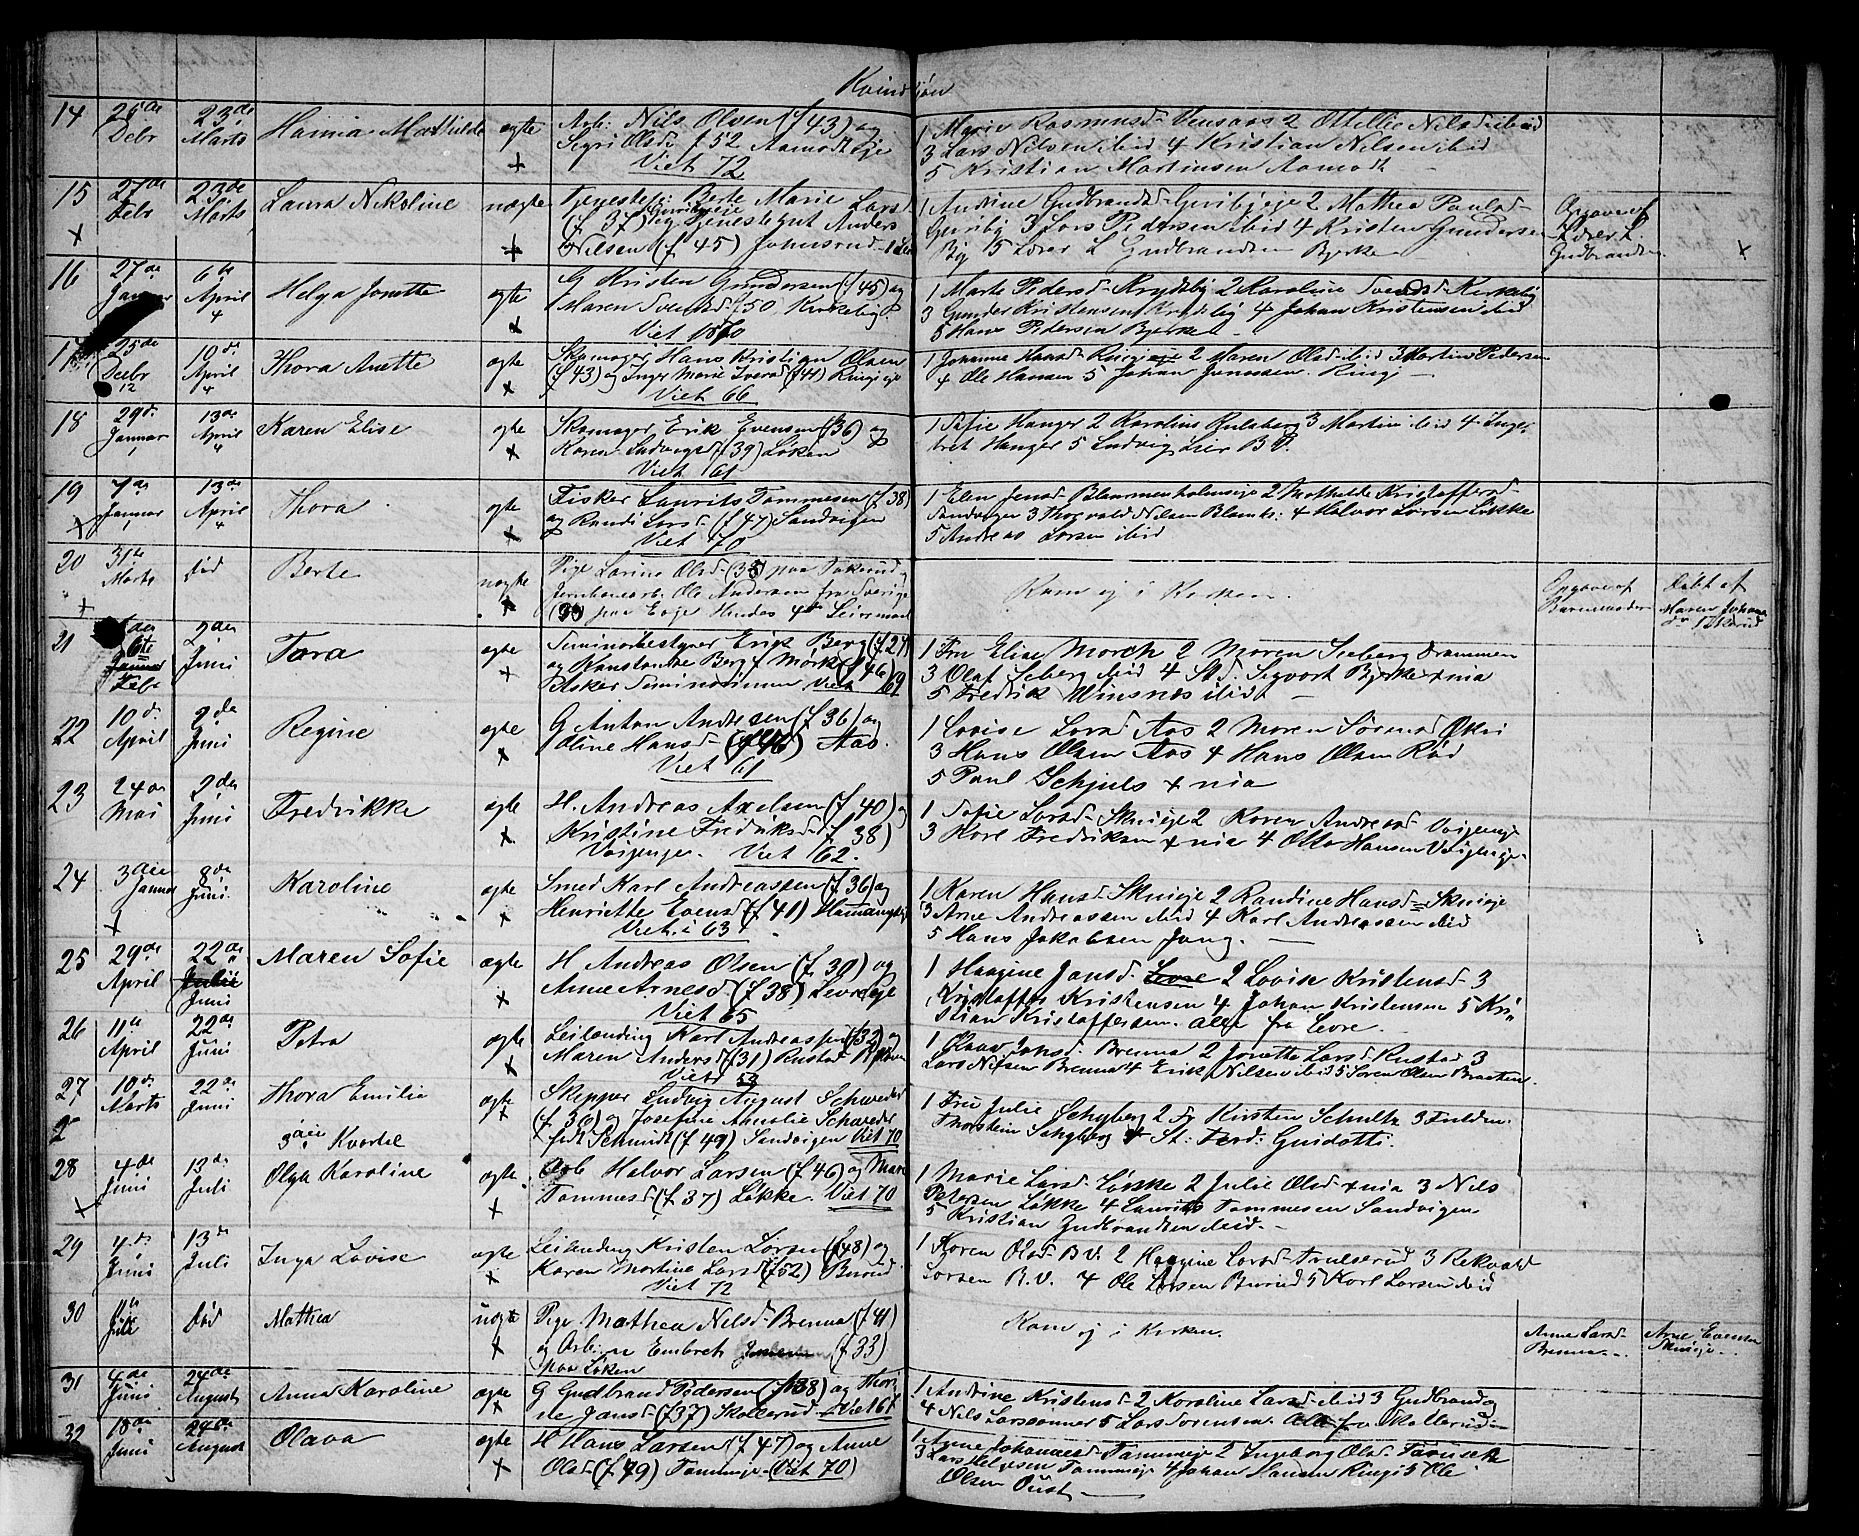 Kvindkjøn
14 26de Debr 23de Marts Hanna Mathilde ægte Arb: Nils Olsen (f 43) og
Sigri Olsd f 52 Aamodteje
Viet 72
1 Marie Rasmusd- 2 Ottellie Nilsd ibid
3 Lars Nilsen ibid 4 Kristian Nilsen ibid
5 Kristian Martinsen Aamodt
15 27de Febr 23de Marts Laura Nikoline uægte Tjenestep: Berte Marie Larsd
(f 37) og Tjenestegut Anders
Nilsen (f 45) Johnsrud
1 Andrine Gudbrandsd- 2 Mathea Paulsd-
3 Lars Pedersen ibid 4 Kristen Gundersen
By 5 Lærer L Gudbrandsen Bjerke
Opgave af Lærer L. Gudbrandsen
16 27de Januar 6te April 4 Helga Jonette ægte G Kristen Gundersen (f 45) og
Maren Svensd f 50, Kirkeby
Viet 1870
1 Marte Pedersd- 2 Karoline Svensd- Kirkeby
3 Gunder Kristensen Kirkeby 4 Johan Kristensen ibid
5 Hans Pedersen Bjerke
17 25de Debr 12 19de April 4 Thora Anette ægte Skomager Hans Kristian Olsen
(f 43) og Inger Marie Iversd (f 41) Ringieje
Viet 66
1 Johanne Hansd- Ringieje 2 Maren Olsd- ibid 3 Martin Pedersen
4 Ole Hansen 5 Johan Jonassen. Ringi
18 29de Januar 1 13de April 4 Karen Elise ægte Skomager Erik Evensen (f 36) og
Karen Ludvigsd (f 39) Løken
Viet 61
1 Sofie Hanger 2 Karoline 3 Martin ibid 4 Inge-
bret Hanger 5 Ludvig Lier B.V.
19 7de Januar 1 13de April 4 Thora ægte Fisker Laurits Tommesen (f 38)
og Randi Larsd- (f 47) Sandvigen
Viet 70
1 Elen Jensd- Blommenholmseje 2 Mathilde Kristoffersd-
Sandvigen 3 Thorvald Nilsen Blomh: 4 Halvor Larsen Løkke
5 Andreas Larsen ibid
20 31te Marts død Berte uægte Pige Larine Olsd- (33) paa og
Jernbanearb. Ole Andersen fra Sverige
(39) paa Evje Hendes 4de Leiermaal
Kom ej i Kirken.
Opgave af Barnemoder
Døbt af Maren Johannesdr
21 6te Febr 2den Juni Tora ægte Seminarbestyrer Erik Berg (f 27)
og Konstance Berg f Mørk (f 46)
Asker Seminarium Viet 69
1 Fru Elise Morch 2 Maren Seberg Drammen
3 Olaf Seberg ibid 4 St. Sigvart Bjerke + nia
5 Fredrik Winsnes ibid
22 10de April 2den Juni Regine ægte G Anton Andresen (f 36) og
Oline Hansd- (f 46) Aas.
Viet 61
1 Lovise Larsd- Aas 2 Maren Sørensd Økri
3 Hans Olsen Aas 4 Hans Olsen Rød
5 Paul Schjuls + nia
23 24de Mai 2den Juni Fredrikke ægte H. Andreas Axelsen (f 40) og
Kristine Fredriksd- (f 38)
Vøijenge. Viet 62.
1 Sofie Larsd- Skuieje 2 Karen Andreasd- Vøijenge
3 Karl Fredriksen + nia 4 Otto Hansen Vøijenge.
24 3die Januar 8de Juni. Karoline ægte Smed Karl Andreassen (f 36) og
Henriette Evensd (f 41)
Viet i 63
1 Karen Hansd- Skuieje 2 Randine Hansd- Skuieje
3 Arne Andreassen ibid 4 Karl Andreassen ibid
5 Hans Jakobsen Jong.
25 29de April 22de Juni Maren Sofie ægte H Andreas Olsen (f 30) og
Anne Arnesd- (f 38) Levreeje
Viet 65
1 Haagine Jansd- Levre 2 Lovise Kristensd- 3
Kristoffer Kristensen 4 Johan Kristensen 5 Kri-
stian Kristoffersen. Alle fra Levre.
26 11te April 22de Juni Petra ægte Leilænding Karl Andreassen (f 32) og
Maren Andersd (f 31) Rustad
Viet 53
1 Olava Johsd- Brenna 2 Jonette Larsd Rustad 3
Lars Nilsen Brenna 4 Erik Nilsen ibid 5 Søren Olsen Braaten.
27 10de Marts 22de Juni Thora Emilie ægte Skipper Ludvig August Schweder
(f 36) og Josefine Amalie Schweder
født Schmidt (f 49) Sandvigen Viet 70
1 Fru Julie Schyberg 2 Fr Kirsten Schultz 3 Fuldm.
Thorstein Schyberg 4 St: Ferd: Guidotti.
3die Kvartal
28 4de Juni 13de Juli Olga Karoline ægte Arb Halvor Larsen (f 46) og Mari
Tommesd (f 37) Løkke. Viet 70
1 Marie Larsd- Løkke 2 Julie Olsd + nia 3 Nils
Petersen Løkke 4 Laurits Tommesen Sandvigen
5 Kristian Gudbrandsen ibid.
29 4de Juni 13de Juli Inga Lovise ægte Leilænding Kristen Larsen (f 48) og
Karen Martine Larsd (f 52) Burud
Viet 72
1 Karen Olsd- B.V. 2 Haagine Larsd- Trulserud 3
Larsen B.V. 4 Ole Larsen Burud 5 Karl Larsen ibid
30 11te Juli død Mathea uægte Pige Mathea Nilsd- Brenna (f 41)
og Arb: Embret (f 33)
paa Løken
Kom ej i Kirken.
Anne Larsd- Brenna
Arne Evensen Skuieje
31 4de Juni 24de August Anna Karoline ægte G Gudbrand Pedersen (f 38) og Thor-
ine Jansd- (f 37) Skollerud Viet 61
1 Andrine Kristensd- 2 Karoline Larsd- ibid 3 Gudbrand og
4 Nils Larssønner 5 Lars Sørensen. Alle fra Skollerud
32 18de Juni 24de August Olava ægte H Hans Larsen (f 47) og Anne
Olsd- (f 49) Tammeje- (Viet 70)
1 Anne Johannesd- Tammeje 2 Ingeborg Olsd-
3 Lars Helgesen Tammeje 4 Johan Hansen Ringi 5 Ole
Olsen Oust